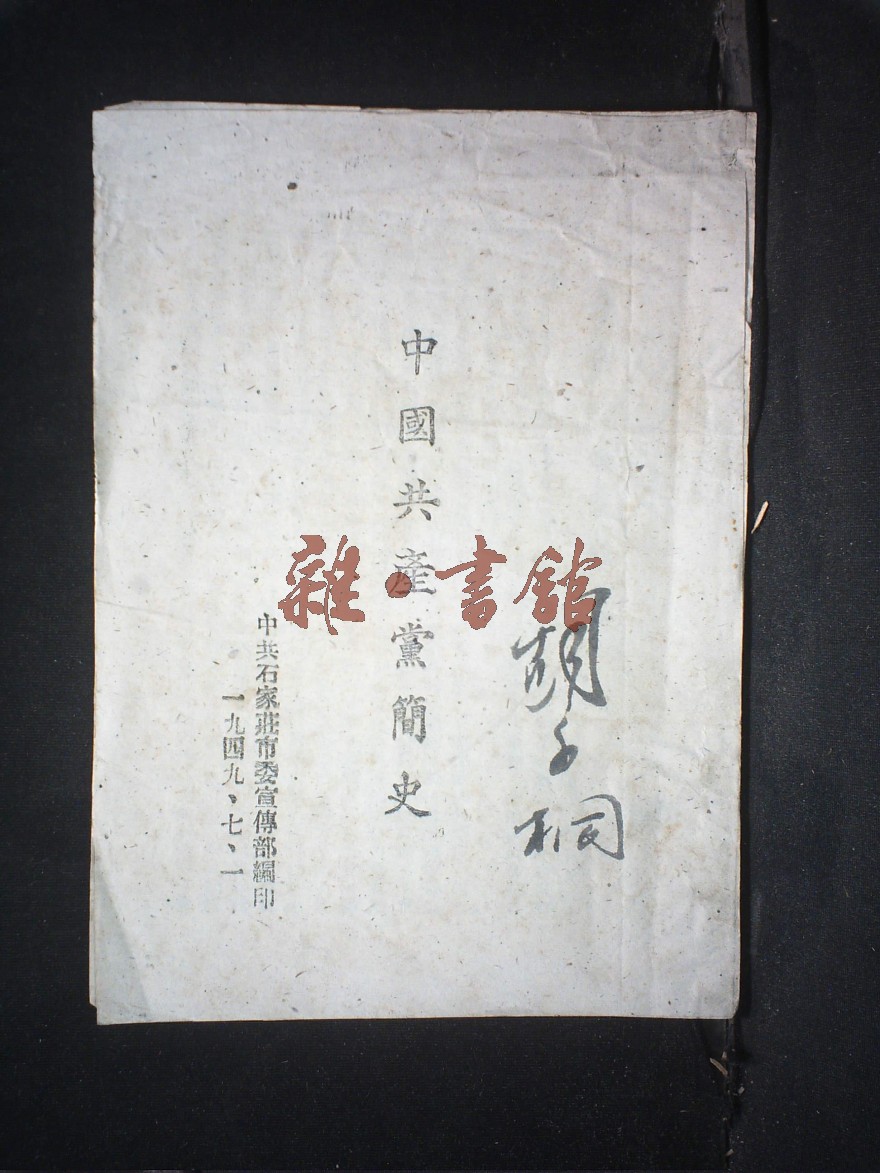 胡子桐
中國共產黨簡史
中共石家莊市委宣傳部編印
一九四九、七、一
雜·書館